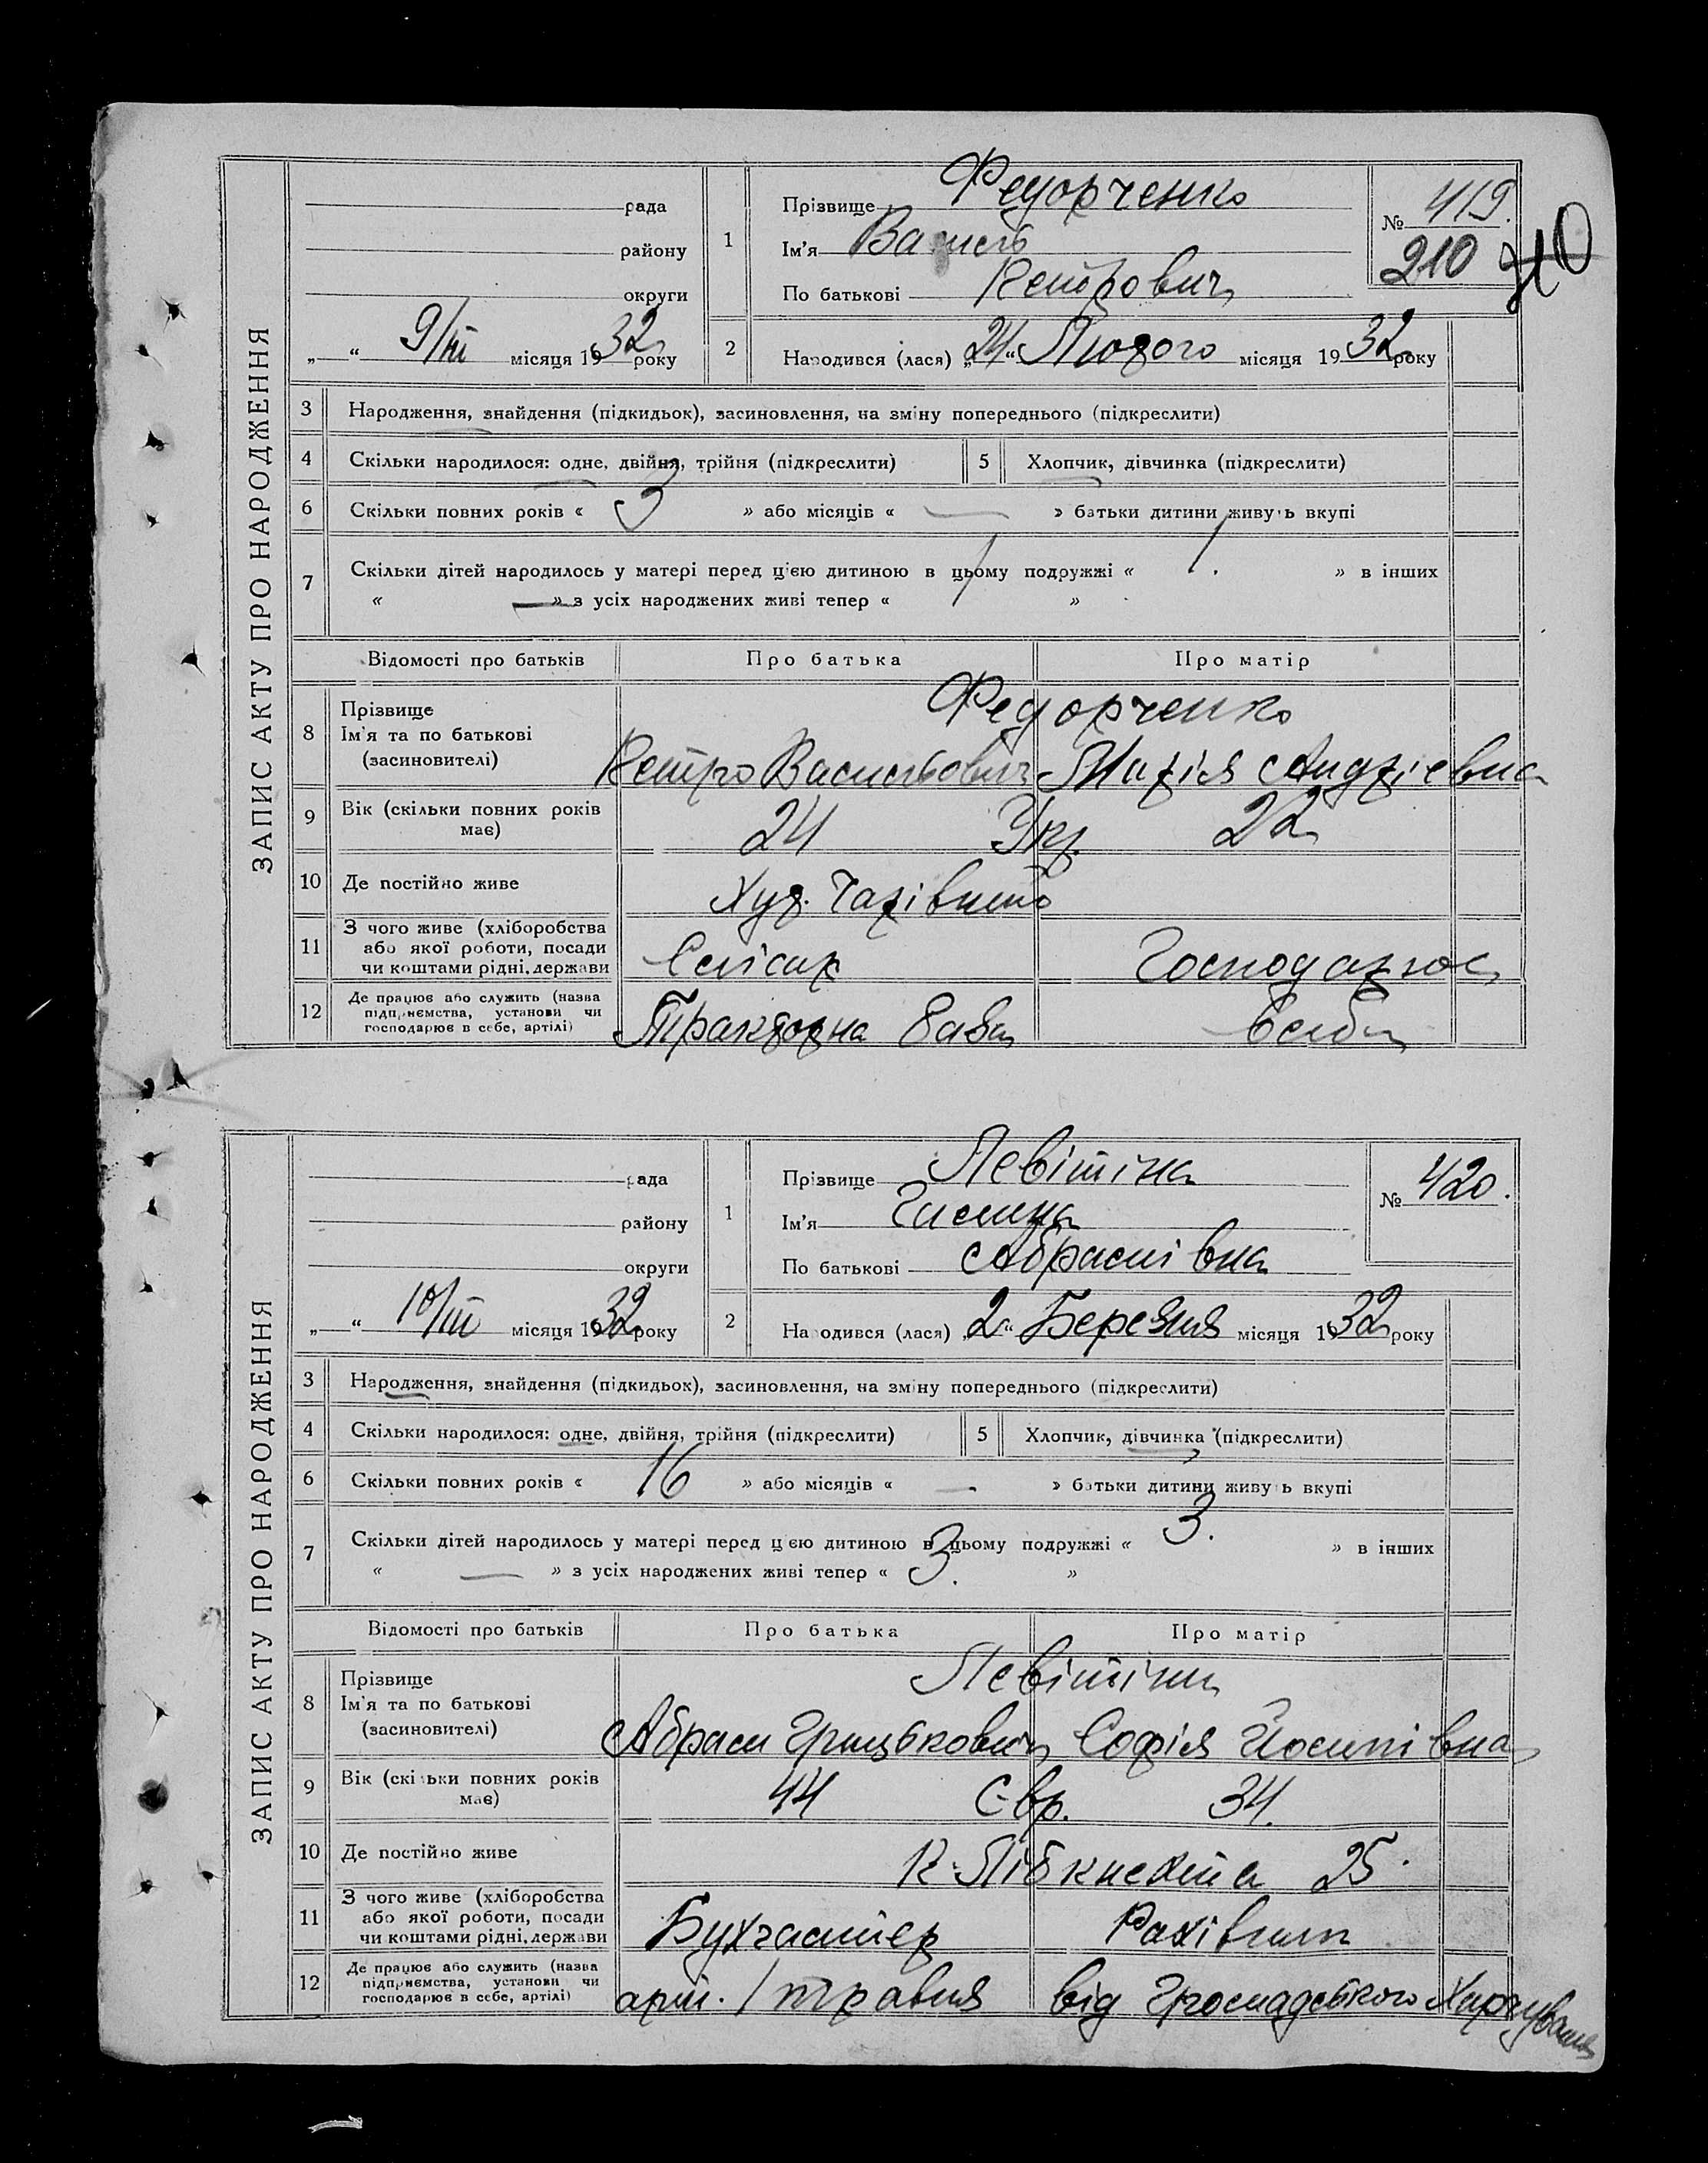 ЗАПИС АКТУ ПРО НАРОДЖЕННЯ
рада
району
округи
„ “ 9/III місяця 1932 року
1 Прізвище Федорченко
Ім'я Василь
По батькові Петрович
№ 419.
210
210
2 Народився (лася) „24“ Лютого місяця 1932 року
3 Народження, знайдення (підкидьок), засиновлення, на зміну попереднього (підкреслити)
4 Скільки народилося: одне, двійня, трійня (підкреслити) 5 Хлопчик, дівчинка (підкреслити)
6 Скільки повних років « 3 » або місяців « — » батьки дитини живуть вкупі
7 Скільки дітей народилось у матері перед цією дитиною в цьому подружжі « 1. » в інших
« — » з усіх народжених живі тепер « 1 »
Відомості про батьків Про батька Про матір
8 Прізвище
Ім'я та по батькові
(засиновителі)
Федорченко
Петро Васильович Марія Андріевна
9 Вік (скільки повних років має) 24 Укр. 22
10 Де постійно живе Худ.
11 З чого живе (хліборобства
або якої роботи, посади
чи коштами рідні, держави
Слісар Господарює
12 Де працює або служить (назва
підприємства, установи чи
господарює в себе, артілі)
Тракторна База
ЗАПИС АКТУ ПРО НАРОДЖЕННЯ
рада
району
округи
„ “ 10/III місяця 1932 року
1 Прізвище Левітіна
Ім'я
По батькові Абрамівна
№ 420.
2 Народився (лася) „2“ Березня місяця 1932 року
3 Народження, знайдення (підкидьок), засиновлення, на зміну попереднього (підкреслити)
4 Скільки народилося: одне, двійня, трійня (підкреслити) 5 Хлопчик, дівчинка (підкреслити)
6 Скільки повних років « 16 » або місяців « — » батьки дитини живуть вкупі
7 Скільки дітей народилось у матері перед цією дитиною в цьому подружжі « 3. » в інших
« — » з усіх народжених живі тепер « 3. »
Відомості про батьків Про батька Про матір
8 Прізвище
Ім'я та по батькові
(засиновителі)
Левітіни
Абрам Грицькович Софія Йосипівна
9 Вік (скільки повних років має) 44 Євр. 34.
10 Де постійно живе К-Лібкнехта 25.
11 З чого живе (хліборобства
або якої роботи, посади
чи коштами рідні, держави
Бухгалтер Рахівниц
12 Де працює або служить (назва
підприємства, установи чи
господарює в себе, артілі)
арт. 1 травня від Громадського Харчування